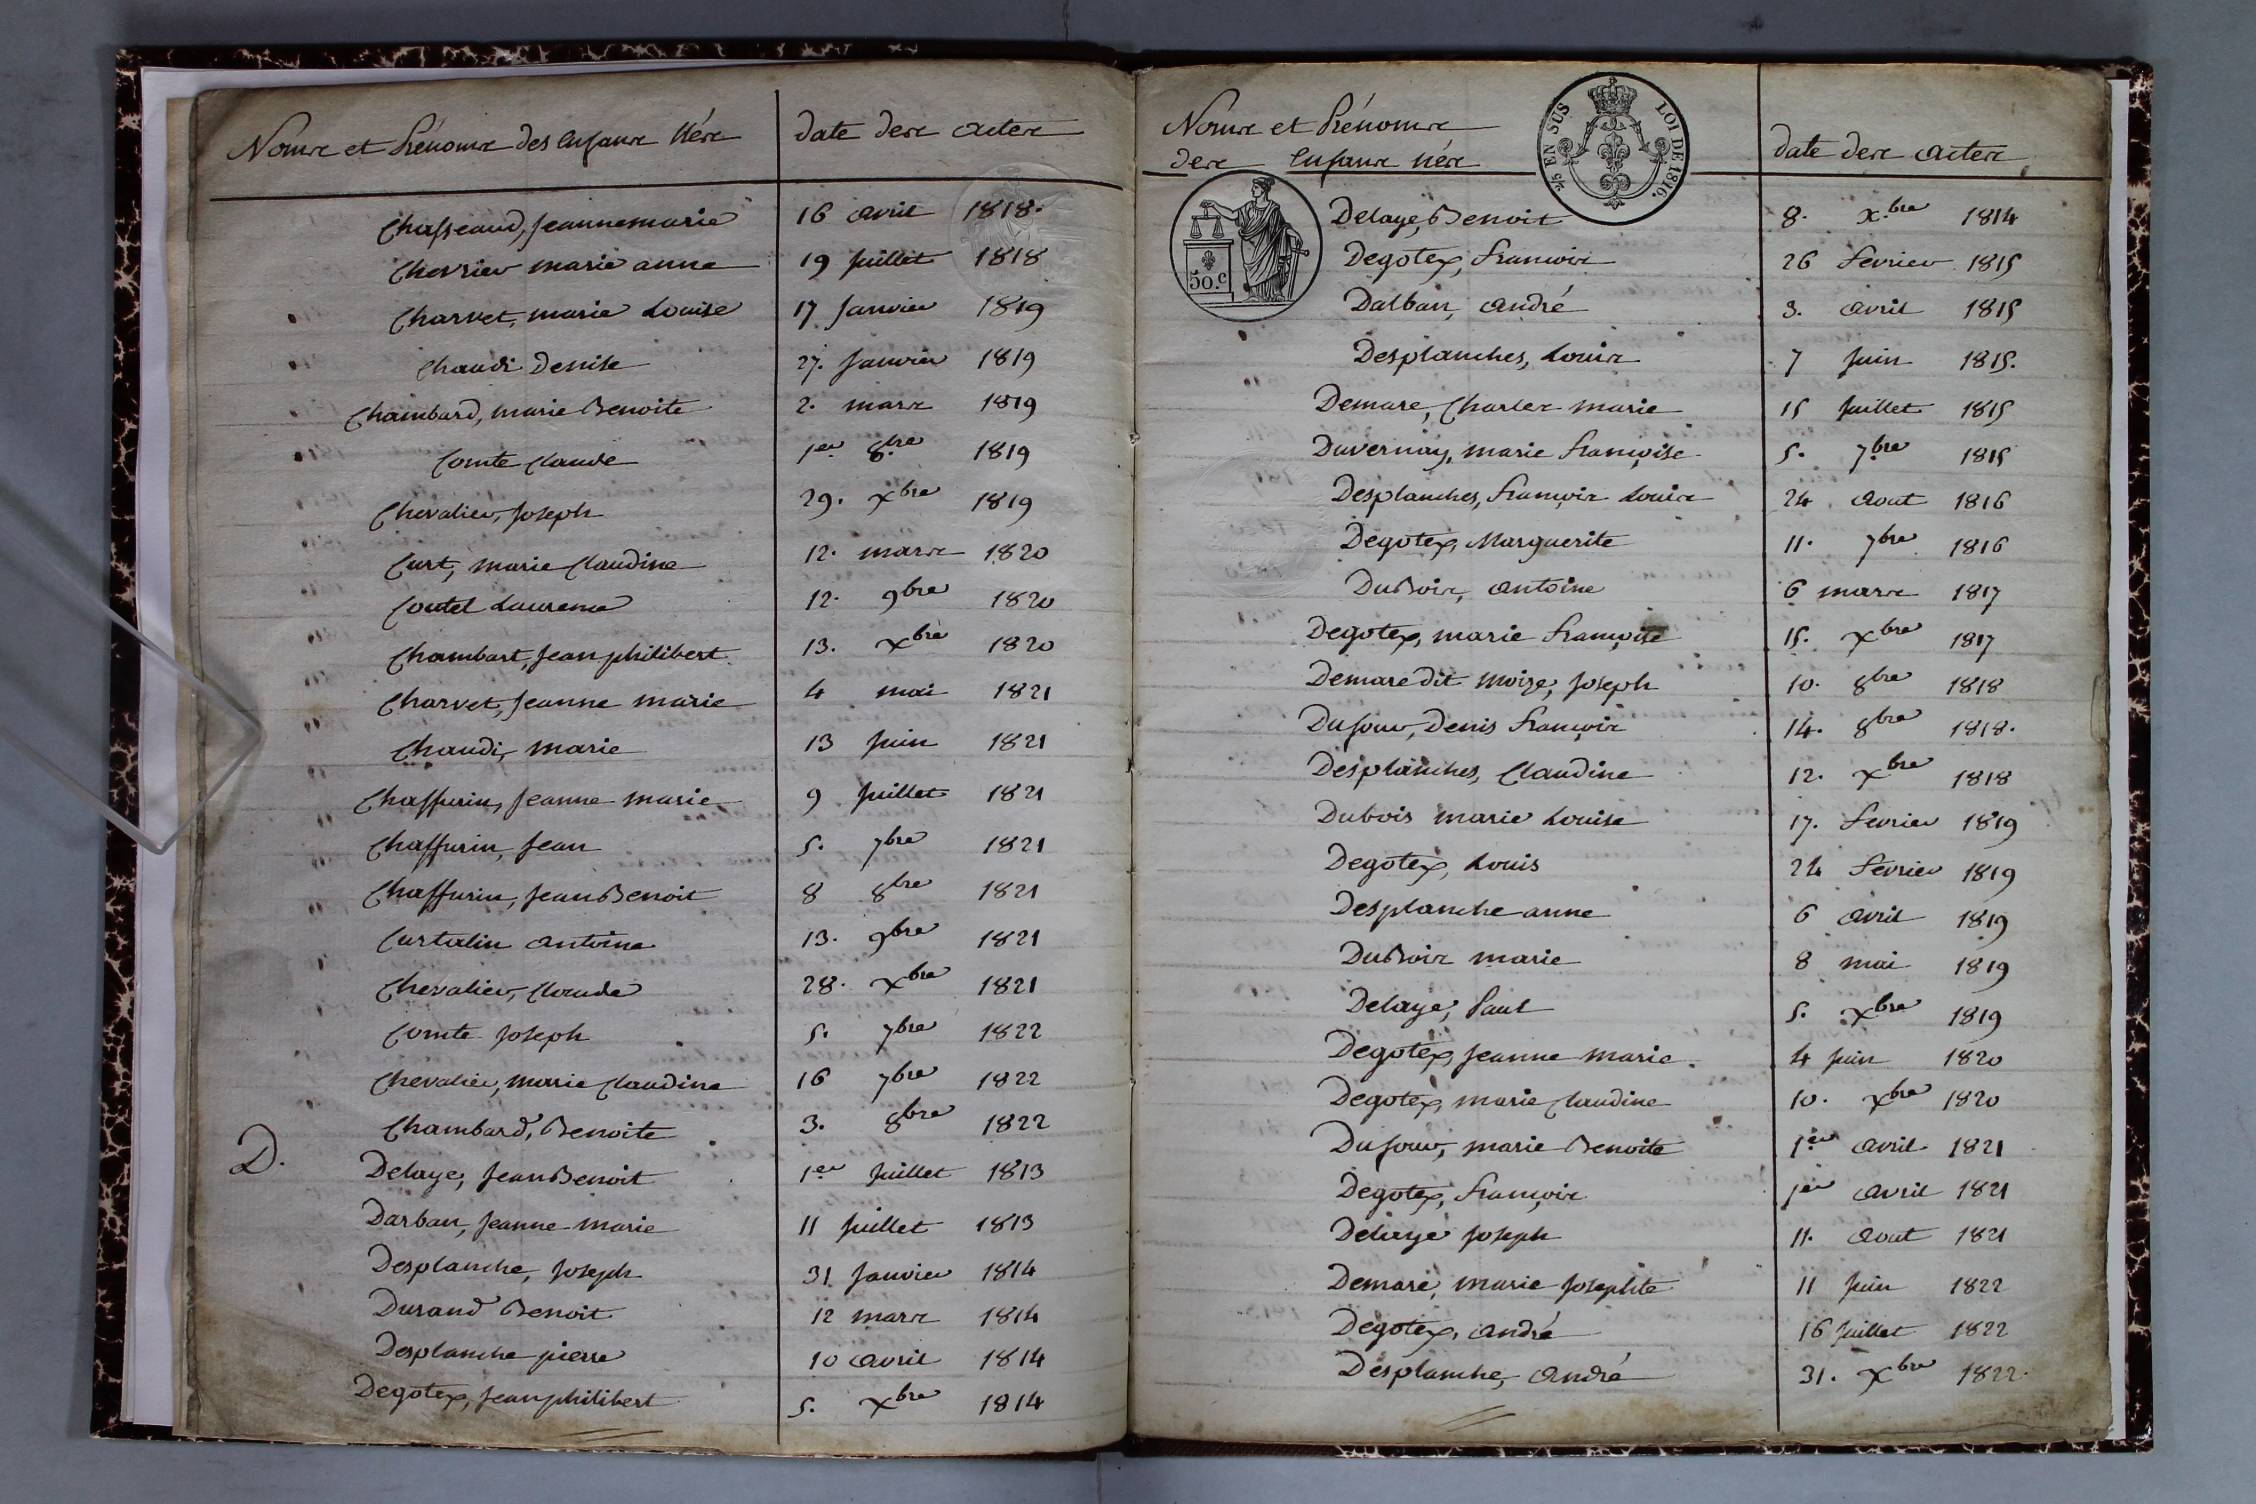 Noms et Prénoms des Enfans Nés date des actes
Chasseaud, Jeanne marie 16 avril 1818.
Chevrier marie anne 19 Juillet 1818
Charvet, marie Louise 17 Janvier 1819
Chaudi Denise 27. Janvier 1819
Chambard, marie Benoite 2. mars 1819
Comte Claude 1er 8.bre 1819
Chevalier, Joseph 29. Xbre 1819
Curt, marie Claudine 12. mars 1820
Coutel Laurence 12. 9bre 1820
Chambart, Jean philibert 13. Xbre 1820
Charvet, Jeanne marie 4 mai 1821
Chaudi, marie 13 Juin 1821
Chaffurin, Jeanne marie 9 Juillet 1821
Chaffurin, Jean 5. 7bre 1821
Chaffurin, Jean Benoit 8 8bre 1821
Curtalin antoine 13. 9bre 1821
Chevalier, Claude 28. Xbre 1821
Comte Joseph 5. 7bre 1822
Chevalier, marie Claudine 16 7bre 1822
Chambard, Benoite 3. 8bre 1822
D. Delaye, Jean Benoit 1er Juillet 1813
Darban, Jeanne marie 11 Juillet 1813
Desplanche, Joseph 31 Janvier 1814
Durand Benoit 12 mars 1814
Desplanche pierre 10 avril 1814
Degotex, Jean philibert 5. Xbre 1814
Noms et Prénoms
des Enfans nés date des actes
2/5 EN SUS LOI DE 1816.
50.c
Delaye, Benoit 8. X.bre 1814
Degotex, François 26 Fevrier 1815
Dalban, andré 3. avril 1815
Desplanches, Louis 7 Juin 1815.
Demare, Charles marie 15 Juillet 1815
Duvernay, marie Françoise 5. 7bre 1815
Desplanches, François Louis 24 aout 1816
Degotex, Marguerite 11. 7bre 1816
DuBois, antoine 6 mars 1817
Degotex, marie Françoise 15. Xbre 1817
Demare dit moize, Joseph 10. 8bre 1818
Dufour, Denis François 14. 8bre 1818.
Desplanches, Claudine 12. Xbre 1818
Dubois marie Louise 17. Fevrier 1819
Degotex, Louis 24 Fevrier 1819
Desplanche anne 6 avril 1819
DuBois marie 8 mai 1819
Delaye, Paul 5. Xbre 1819
Degotex, Jeanne marie 4 Juin 1820
Degotex, marie Claudine 10. Xbre 1820
Dufour, marie Benoite 1er avril 1821
Degotex, François 1er avril 1821
Delaye Joseph 11. aout 1821
Demare, marie Josephte 11 Juin 1822
Degotex, andré 16 Juillet 1822
Desplanche, andré 31. Xbre 1822.